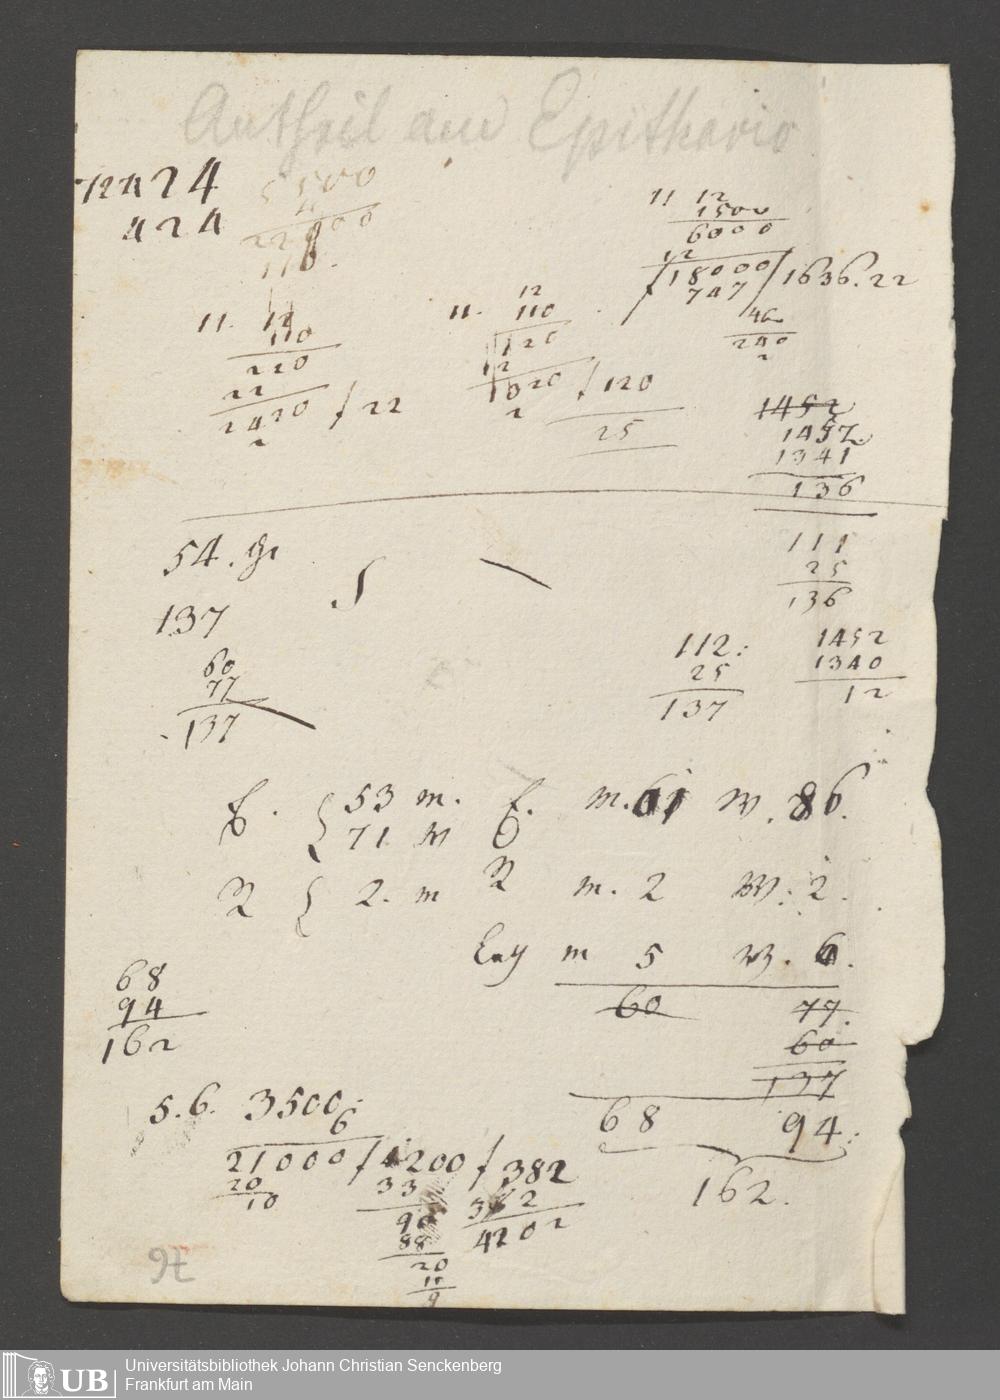 Antheil am Epithavio
424
5500
4
22000
110.
11 12
1500
6000
12
18000 / 1636.22
747
46
240
2
11. 12
110
220
22
2420 / 22
2
11. 12
110
120
12
1320 / 120
2
25
1452
1452
1341
136
54. gr
137
60
77
137
111
25
136
112:
25
137
1452
1340
12
53 m.
71 w
m. 61 w. 86.
2. m
m. 2 W. 2.
m 5 W. 6.
60 77.
60
137
68
94
162
68 94:
162.
5.6. 3500
6
21000 / 4200 / 382
20
10
33
90
88
20
11
9
382
4202
97
UB
Universitätsbibliothek Johann Christian Senckenberg
Frankfurt am Main